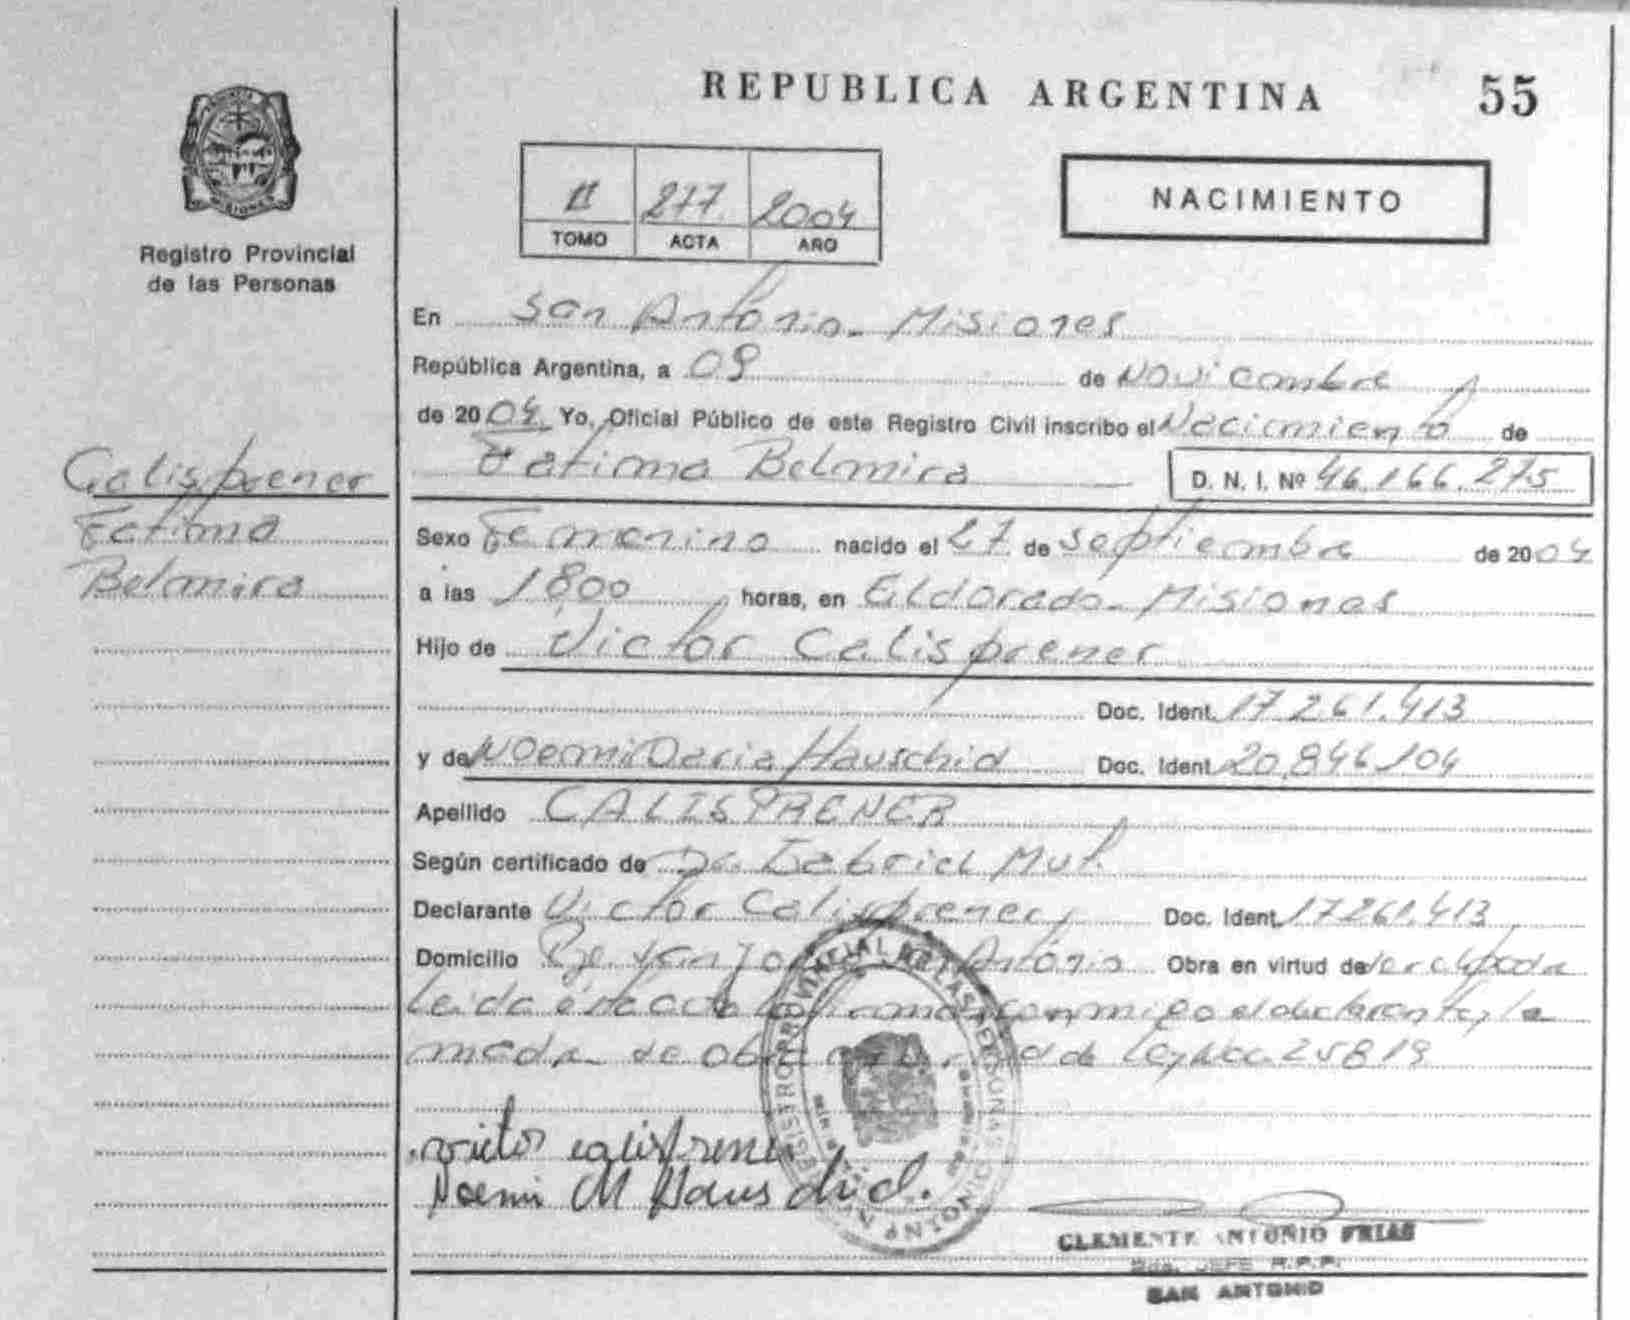 REPUBLICA ARGENTINA 55
PROVINCIA
MISIONES
Registro Provincial
de las Personas
II 277 2004
TOMO ACTA AÑO
NACIMIENTO
En San Antonio - Misiones
República Argentina, a 09 de Noviembre
de 2004 Yo, Oficial Público de este Registro Civil inscribo el Nacimiento de
Fatima Belmira D. N. I. Nº 46.166.275
Calisprener
Fatima
Belmira
Sexo Femenino nacido el 27 de Septiembre de 2004
a las 1800 horas, en Eldorado - Misiones
Hijo de Victor Calisprener
Doc. Ident. 17.261.413
y de Noemi Maria Hauschid Doc. Ident. 20.846.104
Apellido CALISPRENER
Según certificado de Dr. Gabriel Mut
Declarante Victor Calisprener Doc. Ident. 17261.413
Domicilio Antonio Obra en virtud de
Leida el acta la firman conmigo el declarante y la
madre de Ley Nro. 25819
victor calisprener
Noemi M Hauschid.
CLEMENTE ANTONIO FRIAS
JEFE R.P.P.
SAN ANTONIO